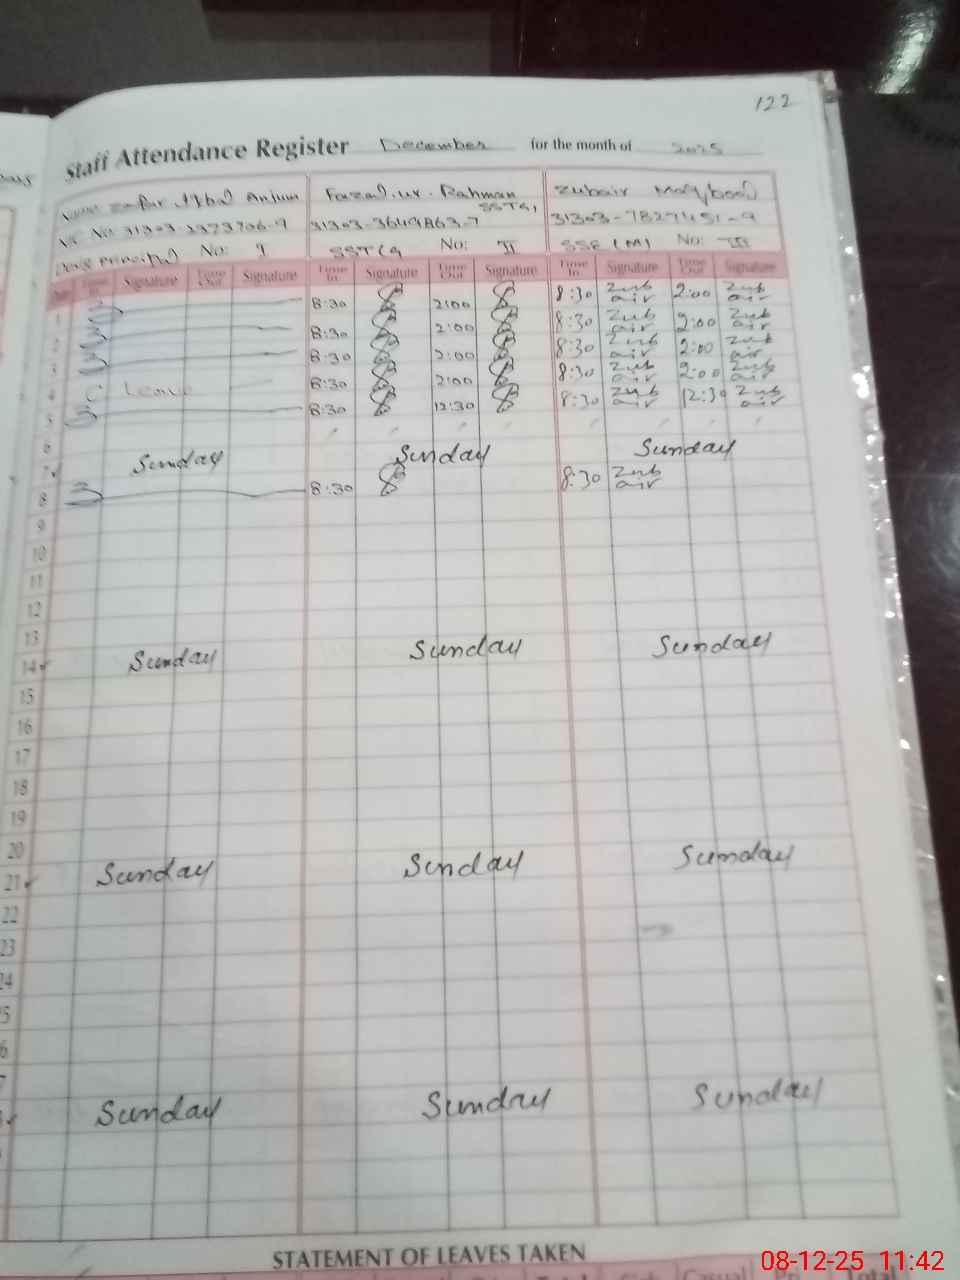 122
Staff Attendance Register December for the month of 2025
Name Zafar Iqbal Anjum Fazal-ur-Rahman Zubair Maqbool
SSTG,
NIC No. 31303-2373706-9 31303-3649863-7 31303-7827451-9
Desig Principal No: I SSTG No: II SSE (M) No: III
Time In Signature Time Out Signature Time In Signature Time Out Signature Time In Signature Time Out Signature
1 8:30 2:00 8:30 Zubair 2:00 Zubair
2 8:30 2:00 8:30 Zubair 2:00 Zubair
3 8:30 2:00 8:30 Zubair 2:00 Zubair
4 C Leave 8:30 2:00 8:30 Zubair 2:00 Zubair
5 8:30 12:30 8:30 Zubair 12:30 Zubair
6
7 Sunday Sunday Sunday
8 8:30 8:30 Zubair
9
10
11
12
13
14 Sunday Sunday Sunday
15
16
17
18
19
20
21 Sunday Sunday Sunday
22
23
24
5
6
7
Sunday Sunday Sunday
STATEMENT OF LEAVES TAKEN
08-12-25 11:42